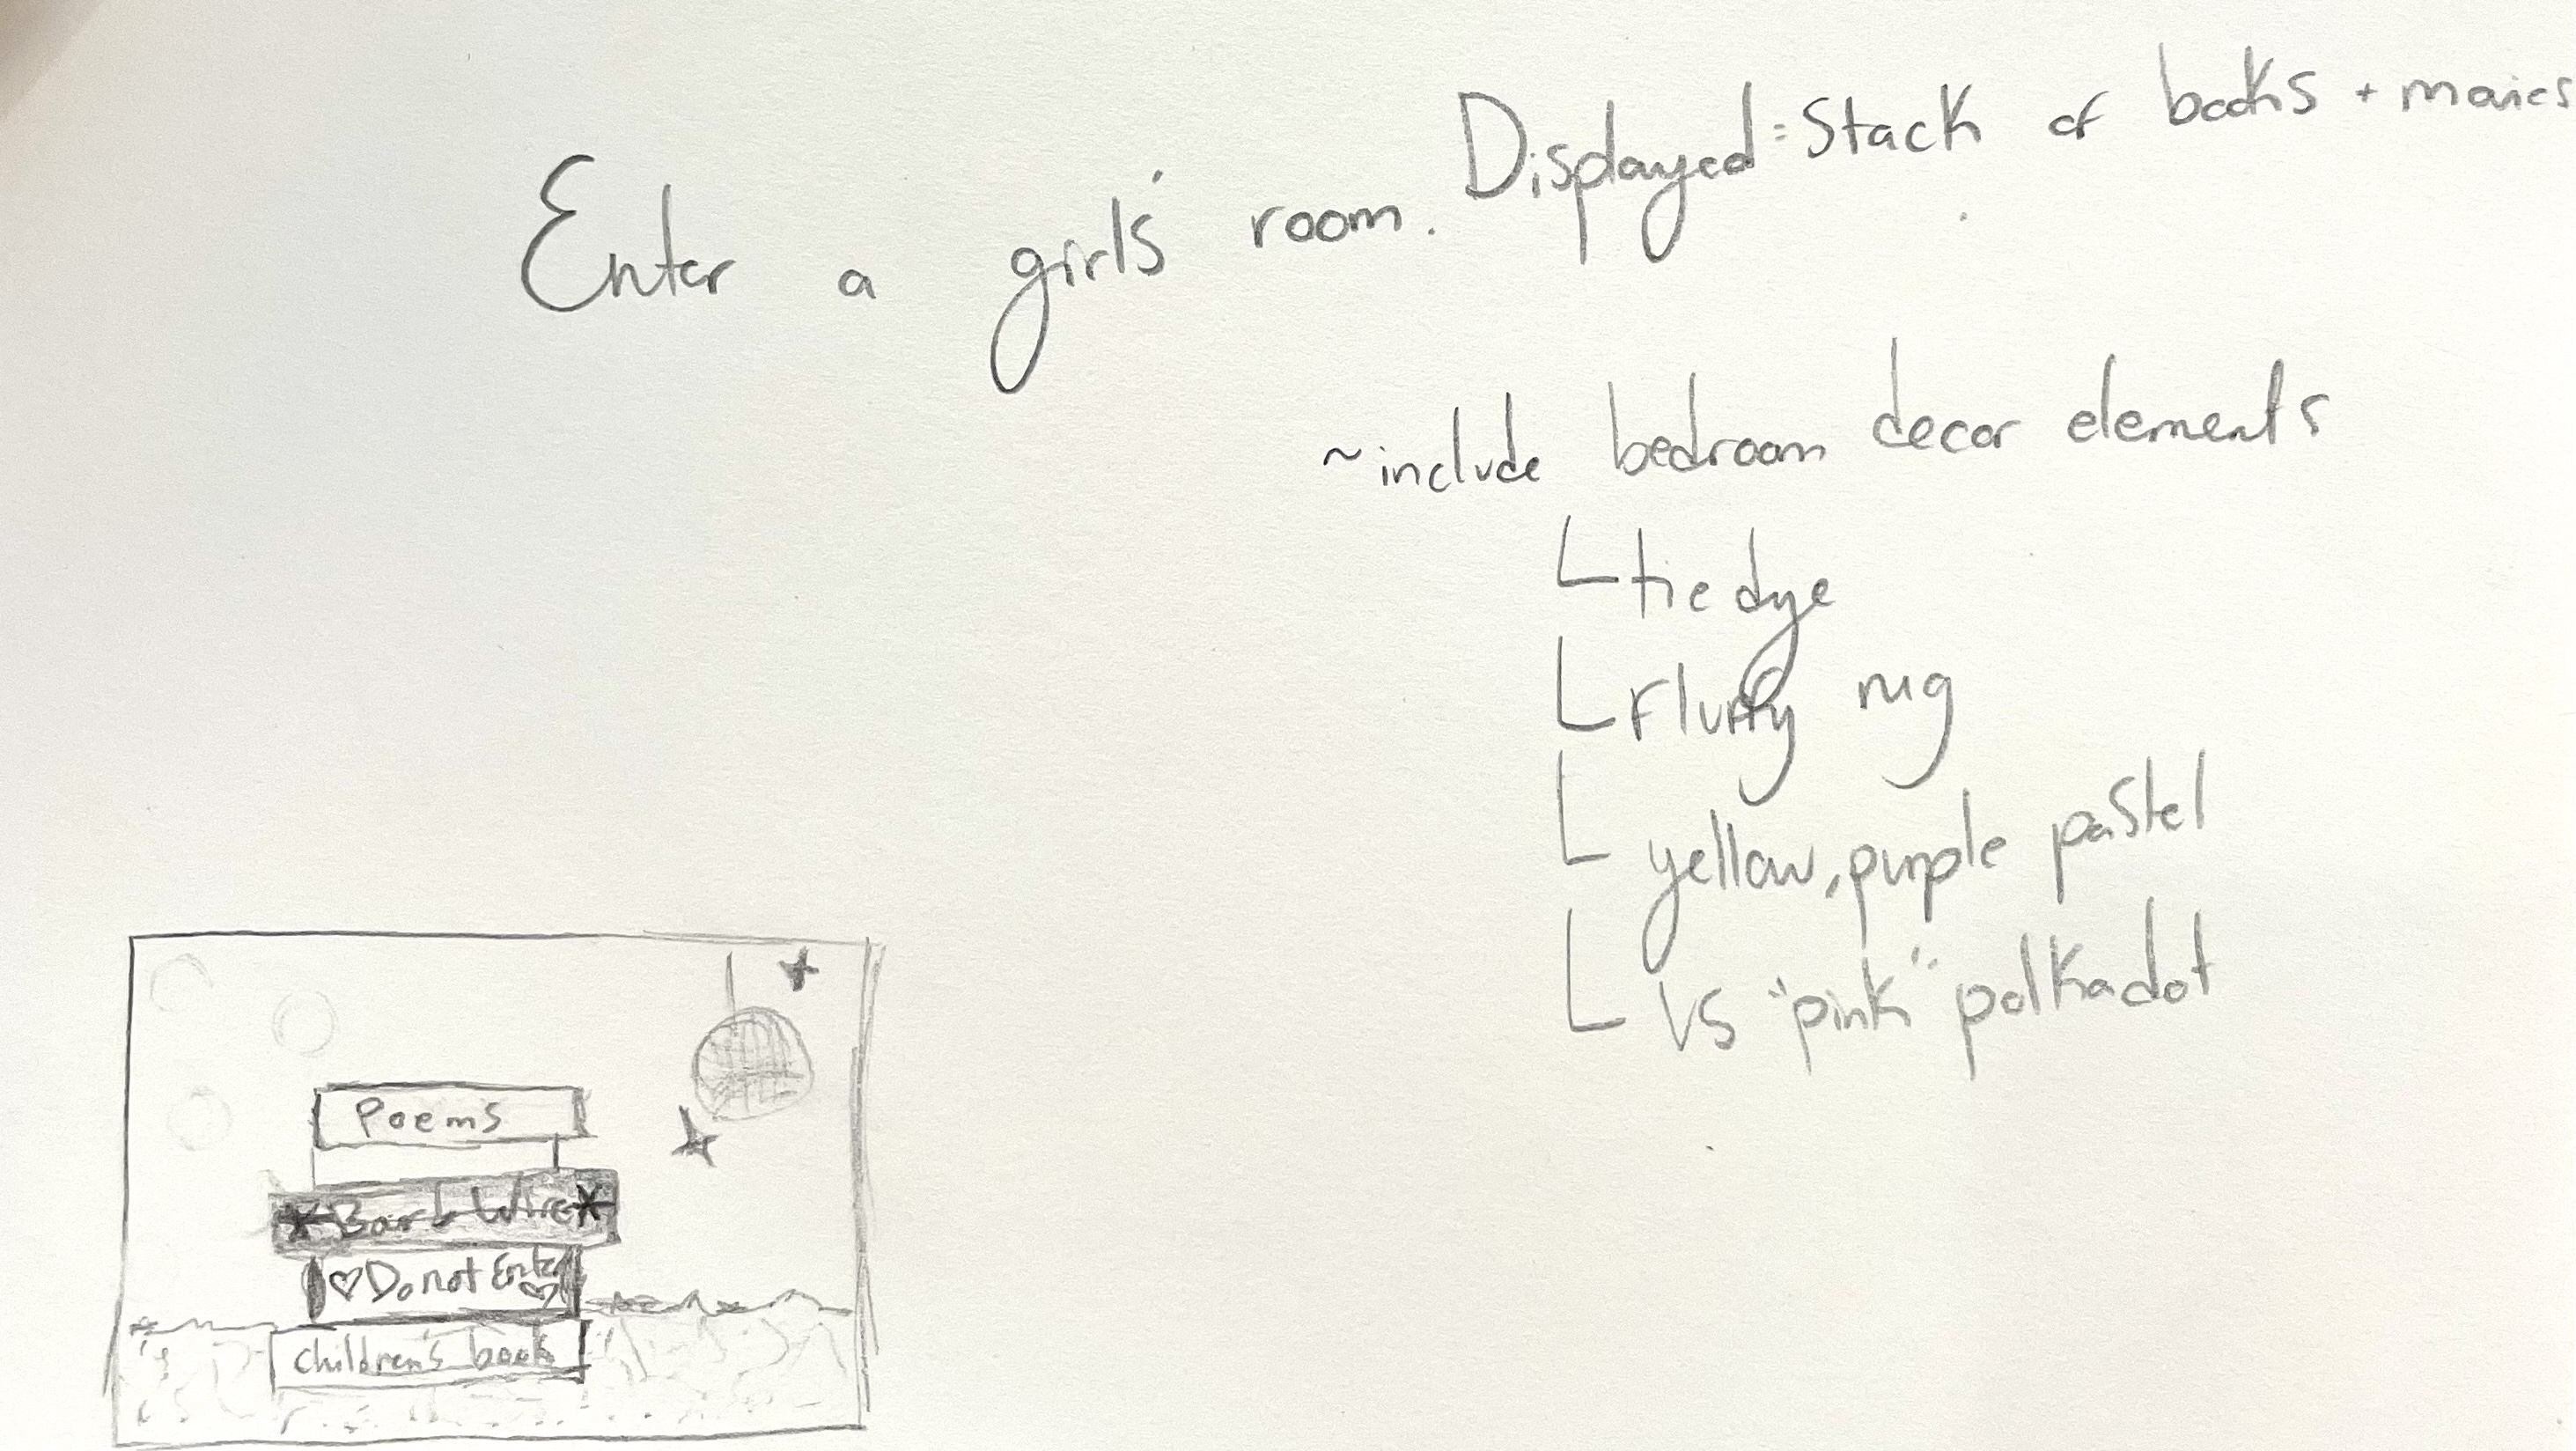 Enter a girls' room. Displayed: Stack of books + movies
~include bedroom decor elements
tie dye
fluffy rug
yellow, purple pastel
vs "pink" polkadot
Poems
Barb Wire
Do not Enter
children's book